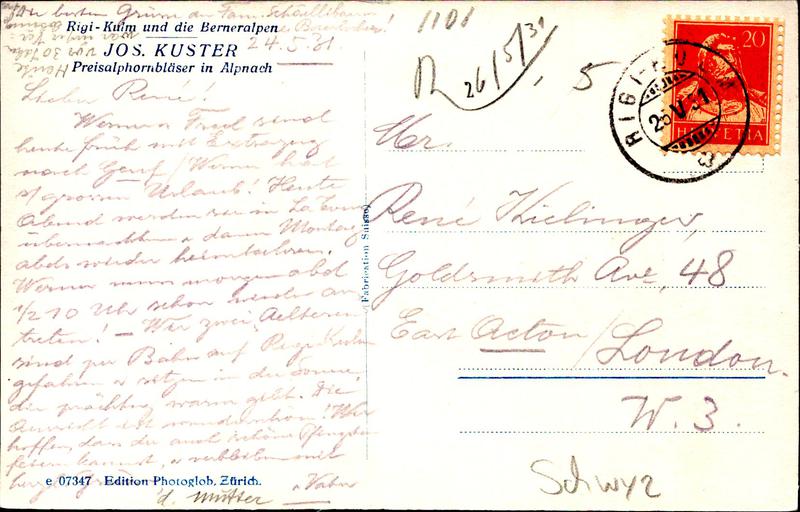 Die besten Grüsse der Fam. Schällibaum
24.5.31
Heute
vor 30 Jahren
Rigi-Kulm und die Berneralpen
JOS. KUSTER
Preisalphornbläser in Alpnach
Lieber René!
Werner & Fred sind
heute früh mit Extrazug
nach Genf / Werner hat
grossen Urlaub! Heute
Abend werden sie in
übernachten u. dann Montag
abds wieder heimfahren.
Werner muss morgen abd
1/2 10 Uhr schon wieder an
treten! – Wir zwei Aelteren
sind per Bahn auf Rigi Kulm
gefahren & sitzen in der Sonne
die prächtig warm gibt. Die
Aussicht ist wunderschön! Wir
hoffen, dass du auch schöne Pfingsten
feiern kannst, & verbleiben mit
herzl. Grüssen
d. Mutter & Vater
e 07347 Edition Photoglob, Zürich.
Fabrication Suisse
1101
R 26/5/31
, 5
20
HELVETIA
RIGI-KULM
25.V.31
Mr.
René Kielinger,
Goldsmith Ave, 48
East Acton / London
W. 3.
Schwyz